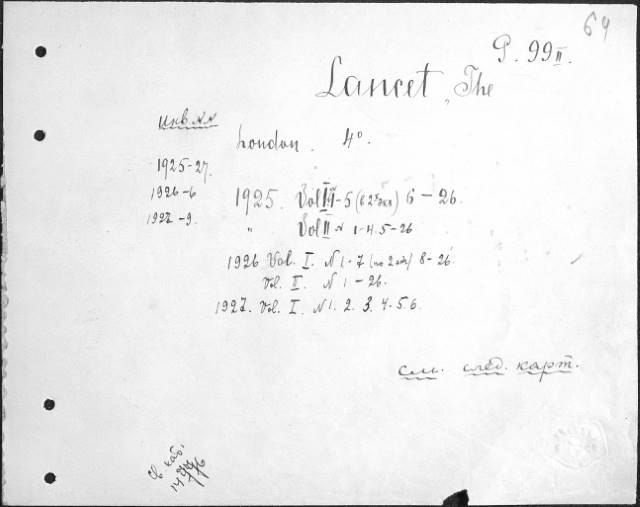 64
P. 99 II.
Lancet, The
Инв. NN
London. 4°.
1925-27.
1926-6
1927-9.
1925. Vol I N 1-5 (в 2х экз) 6-26.
" Vol II N 1-4. 5-26
1926 Vol. I. N 1-7 (по 2 экз) 8-26.
Vol. II. N 1-26.
1927. Vol. I. N 1. 2. 3. 4. 5. 6.
см. след. карт.